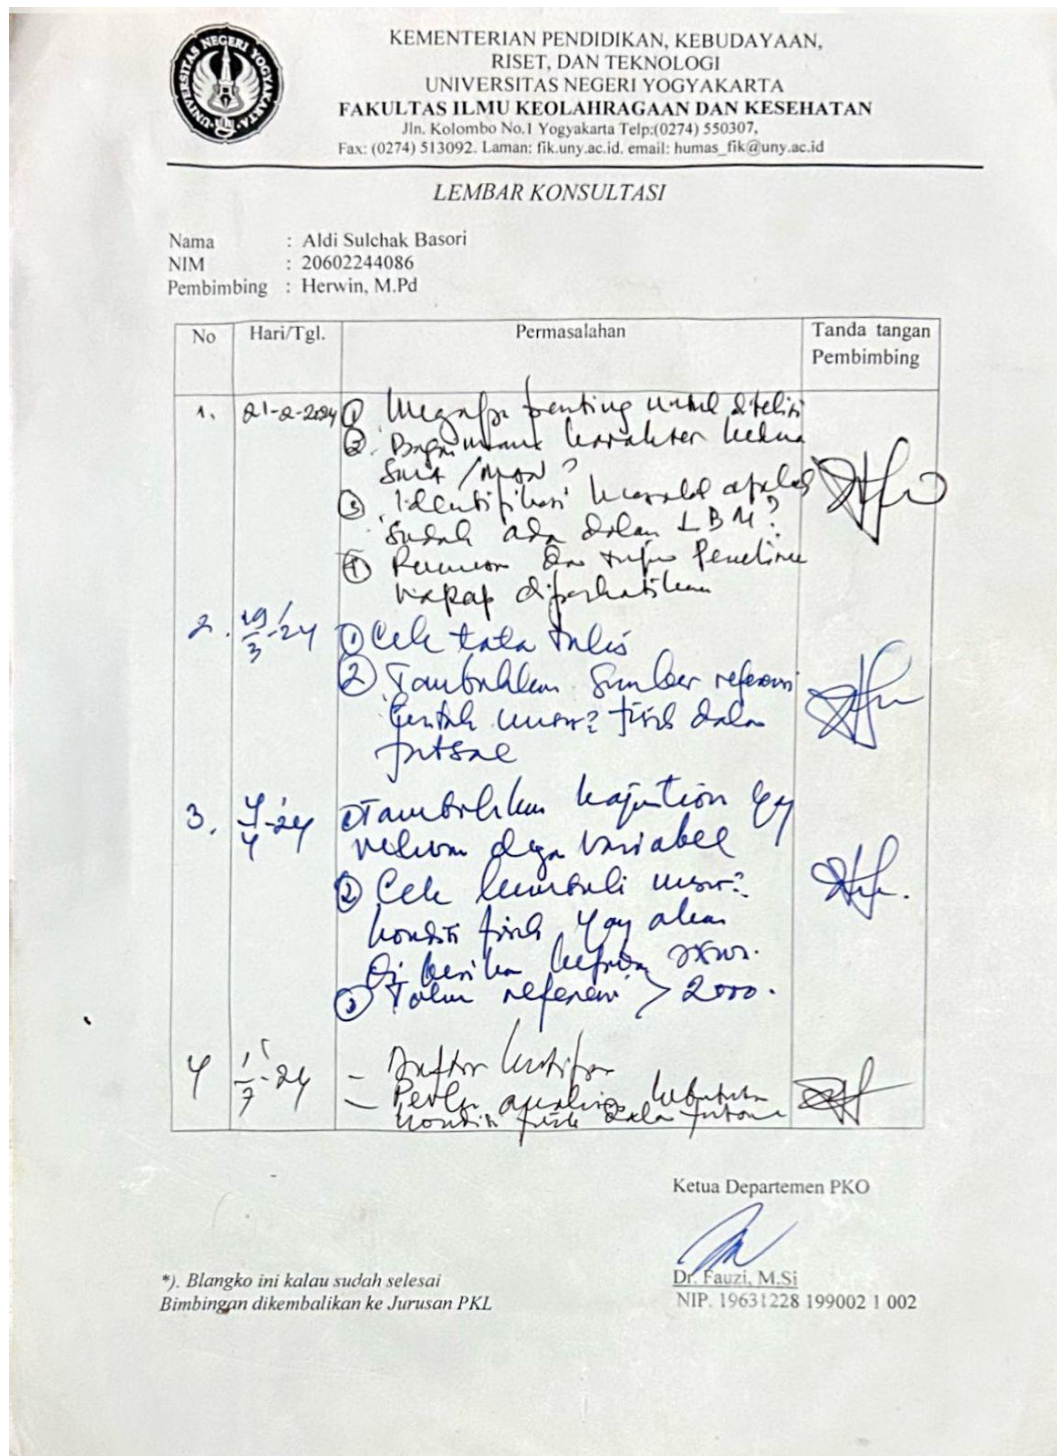 UNIVERSITAS NEGERI YOGYAKARTA
KEMENTERIAN PENDIDIKAN, KEBUDAYAAN,
RISET, DAN TEKNOLOGI
UNIVERSITAS NEGERI YOGYAKARTA
FAKULTAS ILMU KEOLAHRAGAAN DAN KESEHATAN
Jln. Kolombo No.1 Yogyakarta Telp:(0274) 550307,
Fax: (0274) 513092. Laman: fik.uny.ac.id. email: humas_fik@uny.ac.id
LEMBAR KONSULTASI
Nama : Aldi Sulchak Basori
NIM : 20602244086
Pembimbing : Herwin, M.Pd
No Hari/Tgl. Permasalahan Tanda tangan
Pembimbing
1. 21-2-2024 ① Mengapa penting untuk diteliti
② Bagaimana karakter kedua
/MAN ?
③ Identifikasi masalah apakah
sudah ada dalam LBM?
④ Rumusan dan tujuan Penelitian
harap diperhatikan
2. 19/3-'24 ① Cek tata tulis
② Tambahkan Sumber referensi
untuk unsur2 fisik dalam
futsal
3. 4/4-'24 ① Tambahkan yg
relevan dengan variabel
② Cek kembali unsur2
kondisi fisik yang akan
di berikan kepada
③ Tahun referensi > 2000.
4 1/7-'24 - Daftar kutipan
- Perlu analisis kebutuhan
kondisi fisik dalam futsal
Ketua Departemen PKO
Dr. Fauzi, M.Si
NIP. 19631228 199002 1 002
*). Blangko ini kalau sudah selesai
Bimbingan dikembalikan ke Jurusan PKL